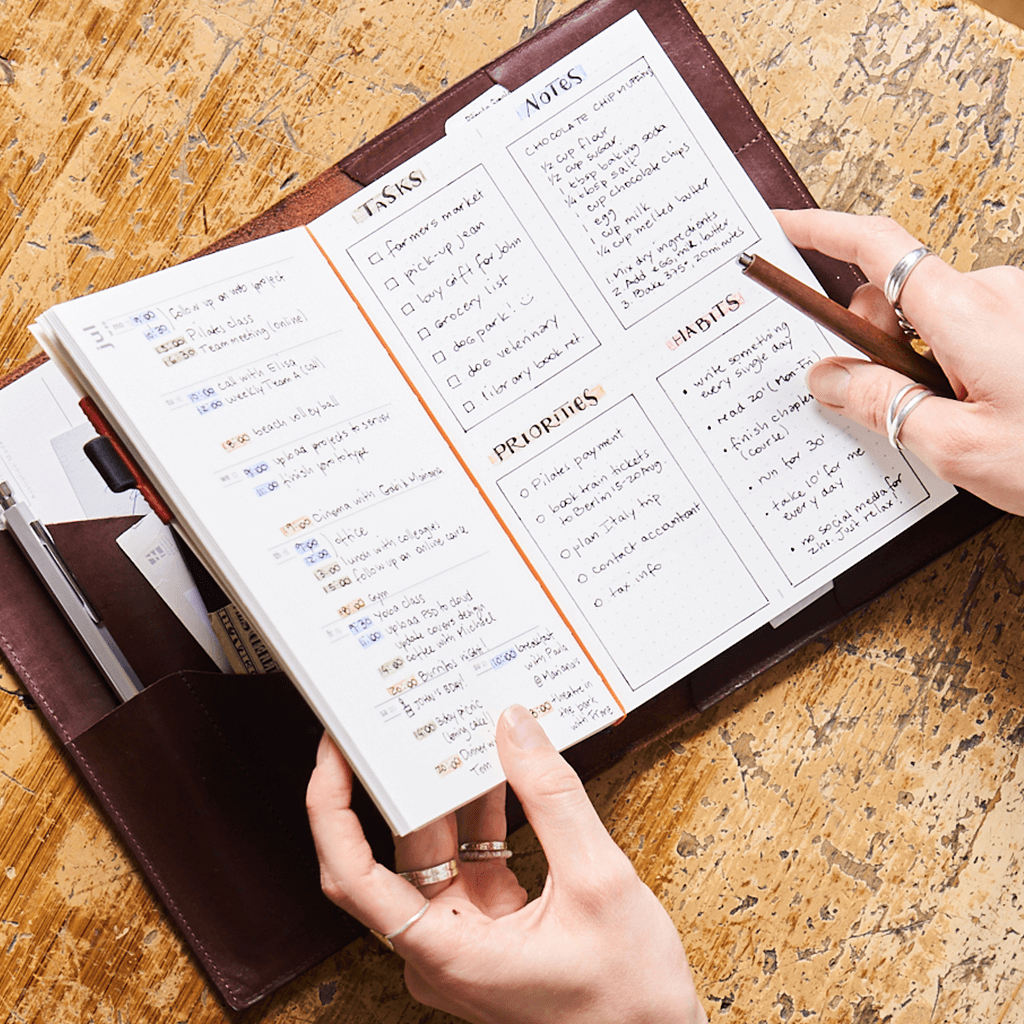 9:00 Follow up on web project
9:30 Pilates class
15:00 Team meeting (online)
16:30
10:00 call with Elisa
12:00 weekly Team A (call)
18:00 beach volleyball
9:00 upload projects to server
11:00 finish prototype
19:00 Cinema with Gabi & Mariana
9:00 office
12:00 lunch with colleagues
13:00 follow up on online course
15:00
18:00 Gym
9:30 Yoga class
11:00 upload PSD to cloud
update covers design
coffee with Michael
20:00 Burritos night!
JOHN'S BDAY!
Bday picnic
(bring cake)
Dinner w/
Tom
10:00 breakfast
with Paula
@Mariana's
theatre in
the park
with Franz
TASKS
farmers market
pick-up jean
buy gift for John
grocery list
dog park! :)
dog veterinary
library book ret.
NOTES
CHOCOLATE CHIP MUFFINS
1/2 cup flour
1/2 cup sugar
1 tbsp baking soda
1/4 tbsp salt
1 cup chocolate chips
1 egg
1 cup milk
1/4 cup melted butter
1. mix dry ingredients
2. Add egg, milk, butter
3. Bake 375° 20 minutes
PRIORITIES
Pilates payment
book train tickets
to Berlin 15-20 Aug.
plan Italy trip
contact accountant
tax info
HABITS
• write something
every single day
• read 20' (Mon-Fri)
• finish chapter
(course)
• run for 30'
• take 10' for me
every day
• no social media for
2hs. just relax!